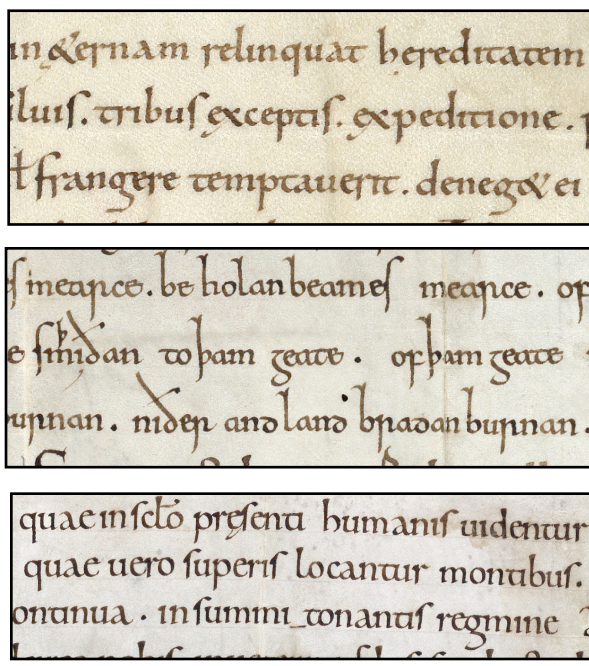 in &ernam relinquat hereditatem
iluis. tribus exceptis. expeditione.
ƚ frangere temptauerit. deneg& ei
mearce. be holan beames mearce. of
smiðan to þam geate. of þam geate
burnan. niðer andlang bradan burnan.
quae in sc̄lo pręsenti humanis uidentur
quae uero superis locantur montibus.
ontinua. in summi tonantis regmine